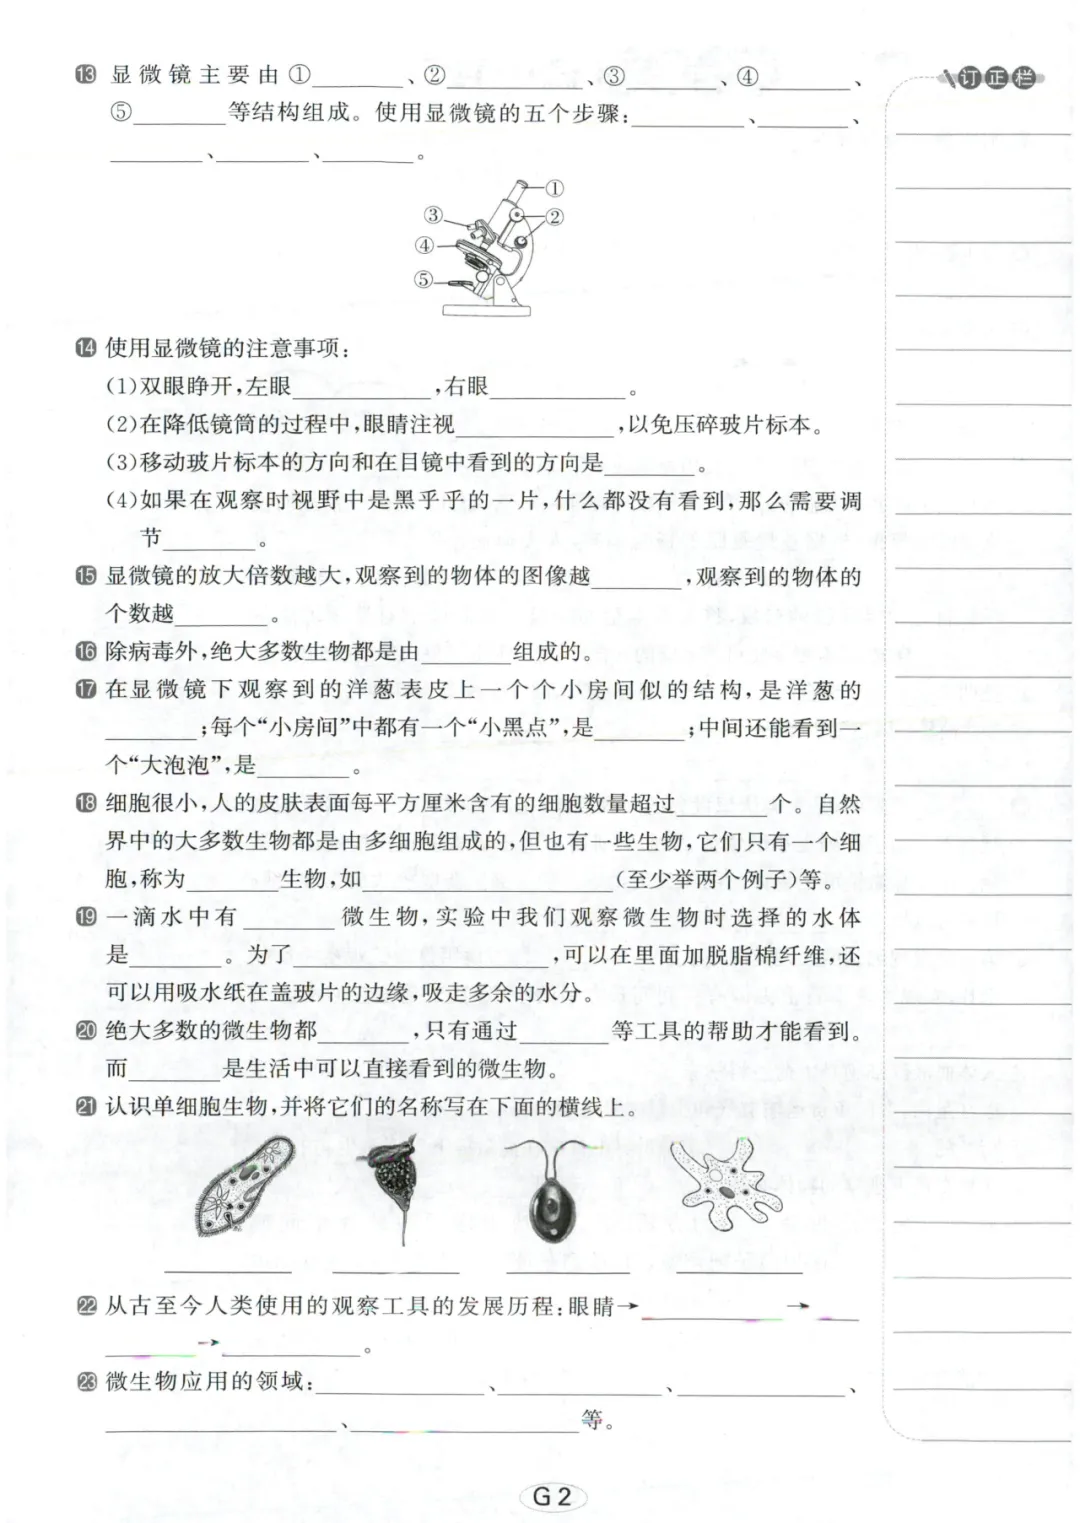 订正栏
13 显微镜主要由①________、②________、③________、④________、
⑤________等结构组成。使用显微镜的五个步骤:________、________、
________、________、________。
①
③ ②
④
⑤
14 使用显微镜的注意事项:
(1)双眼睁开,左眼________,右眼________。
(2)在降低镜筒的过程中,眼睛注视________,以免压碎玻片标本。
(3)移动玻片标本的方向和在目镜中看到的方向是________。
(4)如果在观察时视野中是黑乎乎的一片,什么都没有看到,那么需要调
节________。
15 显微镜的放大倍数越大,观察到的物体的图像越________,观察到的物体的
个数越________。
16 除病毒外,绝大多数生物都是由________组成的。
17 在显微镜下观察到的洋葱表皮上一个个小房间似的结构,是洋葱的
________;每个“小房间”中都有一个“小黑点”,是________;中间还能看到一
个“大泡泡”,是________。
18 细胞很小,人的皮肤表面每平方厘米含有的细胞数量超过________个。自然
界中的大多数生物都是由多细胞组成的,但也有一些生物,它们只有一个细
胞,称为________生物,如________(至少举两个例子)等。
19 一滴水中有________微生物,实验中我们观察微生物时选择的水体
是________。为了________,可以在里面加脱脂棉纤维,还
可以用吸水纸在盖玻片的边缘,吸走多余的水分。
20 绝大多数的微生物都________,只有通过________等工具的帮助才能看到。
而________是生活中可以直接看到的微生物。
21 认识单细胞生物,并将它们的名称写在下面的横线上。
________ ________ ________ ________
22 从古至今人类使用的观察工具的发展历程:眼睛→________→________
→________。
23 微生物应用的领域:________、________、________、
________、________等。
G2